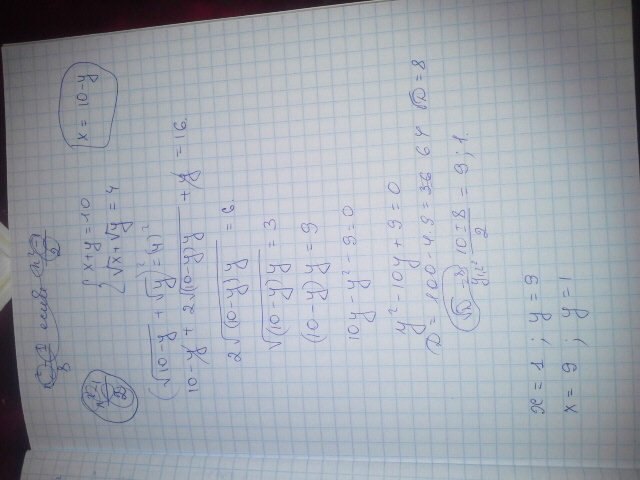 x = 10-y
{ x+y=10
√x+√y=4
(√10-y + √y)²=(4)²
10-y + 2√(10-y)y + y = 16.
2√(10-y)y = 6
√(10-y)y = 3
(10-y)y = 9
10y - y² - 9 = 0
y² - 10y + 9 = 0
D = 100 - 4·9 = 36 64 √D = 8
y1,2 = 10±8/2 = 9; 1.
x = 1; y = 9
x = 9; y = 1